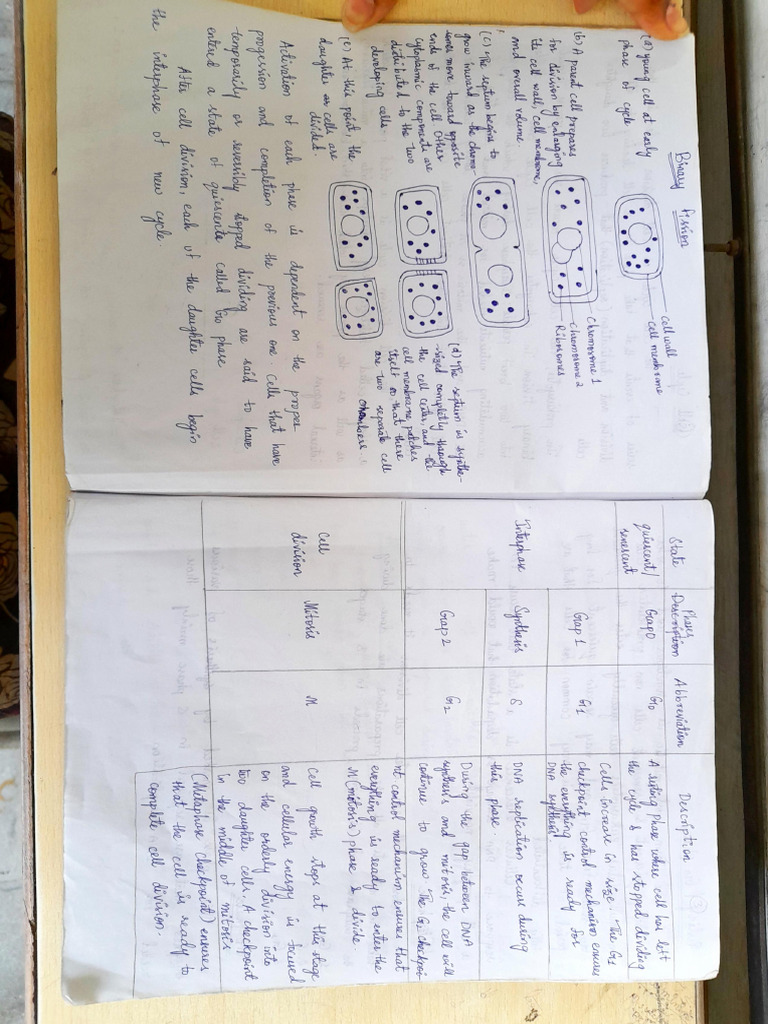 Binary Fission
(a) young cell at early
phase of cycle
cell wall
cell membrane
(b) A parent cell prepares
for division by enlarging
its cell wall, cell membrane,
and overall volume.
Chromosome 1
Chromosome 2
Ribosomes
(c) The septum begins to
grow inward as the chromo-
somes move toward opposite
ends of the cell. Other
cytoplasmic components are
distributed to the two
developing cells.
(d) The septum is synthe-
-sized completely through
the cell center, and the
cell membrane patches
itself so that there
are two separate cell
chambers.
(e) At this point, the
daughter cells are
divided.
Activation of each phase is dependent on the proper
progression and completion of the previous one. Cells that have
-temporarily or reversibly stopped dividing are said to have
entered a state of quiescents called G0 phase
After cell division, each of the daughter cells begin
the interphase of new cycle.
State Phases Description Abbreviation Description
quiescent/ senescent Gap 0 G0 A resting phase where cell has left
the cycle & has stopped dividing
Interphase Gap 1 G1 Cells increase in size. The G1
checkpoint control mechanism ensures
the everything is ready for
DNA synthesis
Synthesis S DNA replication occurs during
this phase.
Gap 2 G2 During the gap between DNA
synthesis and mitosis, the cell will
continue to grow. The G2 checkpoi-
nt control mechanism ensures that
everything is ready to enter the
M (mitosis) phase & divide.
Cell division Mitosis M Cell growth stops at this stage
and cellular energy is focused
on the orderly division into
two daughter cells. A checkpoint
in the middle of mitosis
(Metaphase checkpoint) ensures
that the cell is ready to
complete cell division.